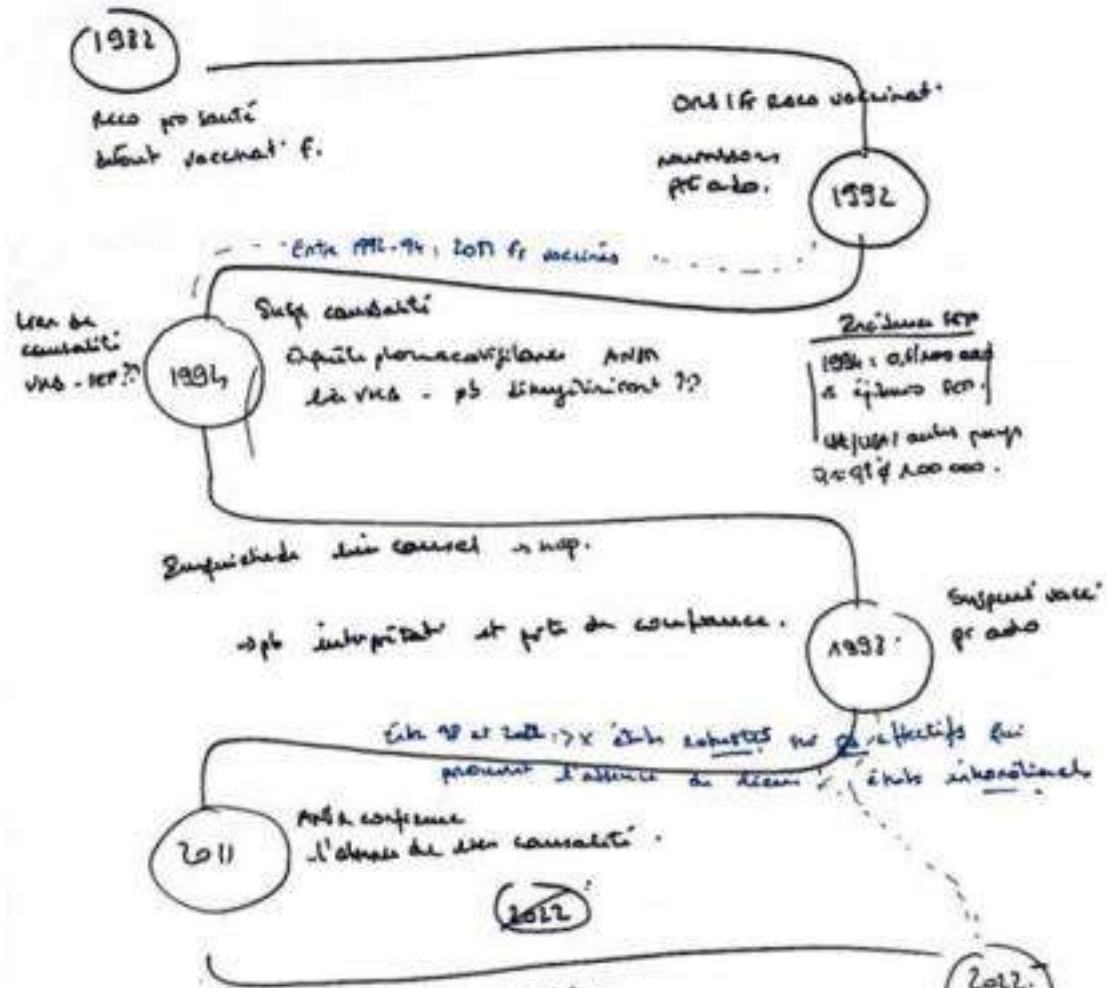 1982
Reco pro santé
début vaccinat° f.
OMS / Fr Reco vaccinat°
nourrissons
pré ado.
1992
Entre 1992-94 : 20M fr vaccinés
Lien de
causalité
VHB - SEP ??
1994
Sugg causalité
Enquête pharmacovigilance ANSM
lien VHB - pb démyélinisant ??
Incidence SEP
1994 :
SEP.
UK/USA/ autres pays
100 000.
lien causal
→ pb interprétat° et perte de confiance.
1998
Suspens° vacci°
pr ado
Entre 98 et : > x études robustes sur gds effectifs qui
prouvent l'absence de liens études internationales
2011
ANSM confirme
l'absence de lien causalité.
2022
2022.